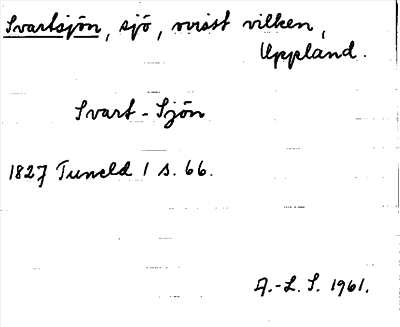 Svartsjön, sjö, ovisst vilken,
Uppland.
Svart-Sjön
1827 Tuneld 1 s. 66.
A.-L. S. 1961.